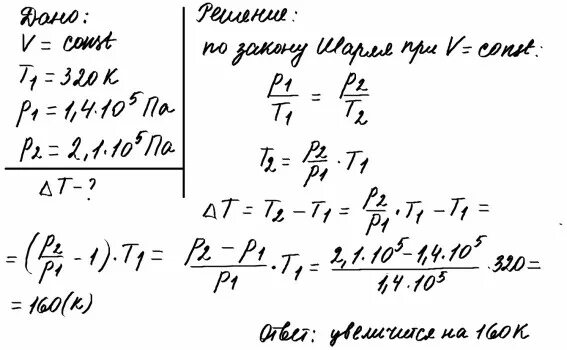 Дано:
V = const
T₁ = 320 К
p₁ = 1,4·10⁵ Па
p₂ = 2,1·10⁵ Па
ΔT - ?
Решение:
по закону Шарля при V = const:
p₁/T₁ = p₂/T₂
T₂ = p₂/p₁ · T₁
ΔT = T₂ - T₁ = p₂/p₁ · T₁ - T₁ =
= (p₂/p₁ - 1) · T₁ = (p₂ - p₁)/p₁ · T₁ = (2,1·10⁵ - 1,4·10⁵)/(1,4·10⁵) · 320 =
= 160 (К)
Ответ: увеличится на 160 К